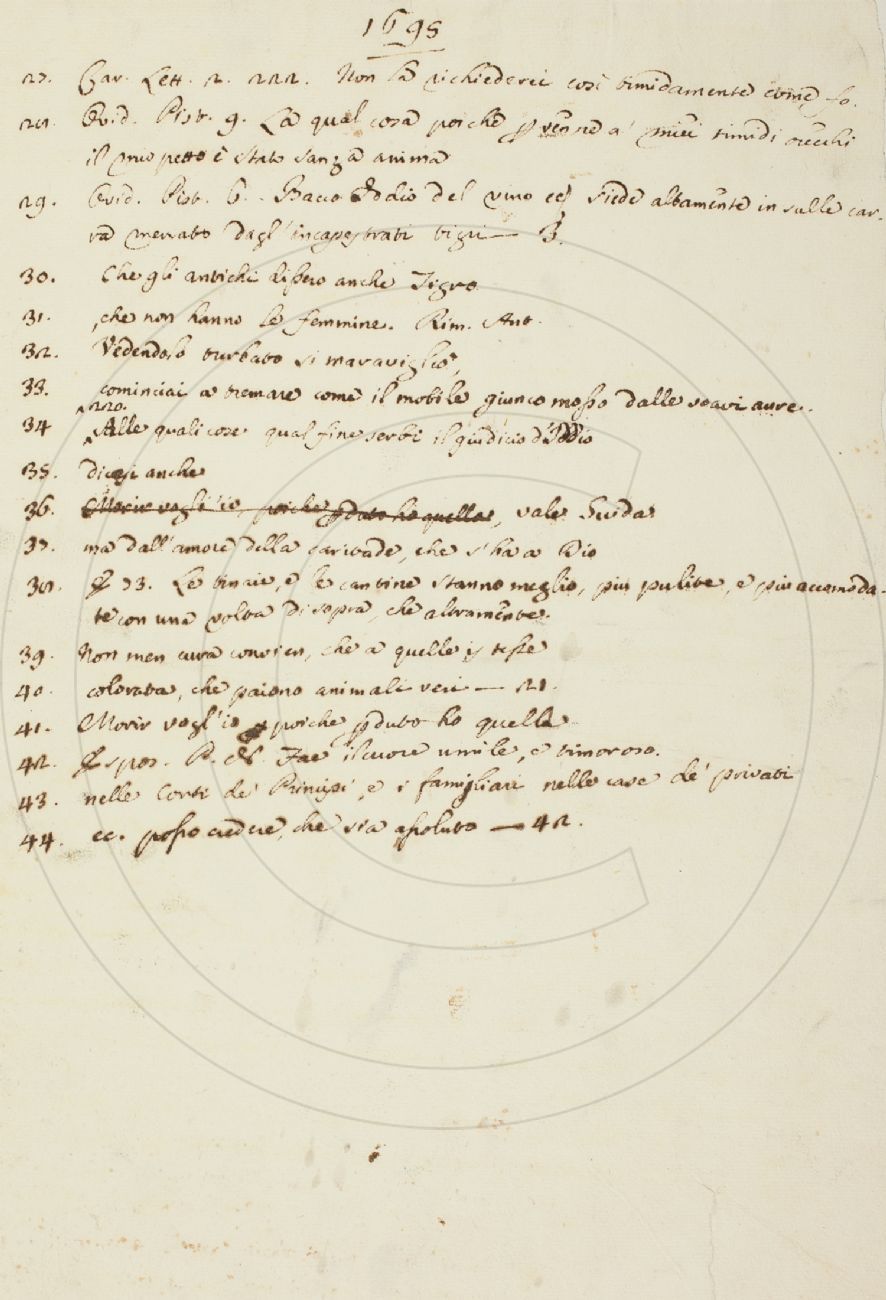 1695
27. Car. Lett. 2. 222. Non la richiederei così timidamente come fo.
28. Ovid. Pist. 9. La qual cosa poichè venne a' miei timidi orecchi
il mio petto è stato sanza anima
29. Ovid. Pist. 6. Bacco Iddio del vino ec. siede altamente in sulle car-
ra menato dagl'incapestrati tigri — 3.
30. Che gli antichi dissero anche Tigro
31. che non hanno le femmine. Rim. Ant.
32. Vedendolo turbato si maravigliò,
33. cominciai a tremare come il mobile giunco mosso dalle soavi aure.
220.
34 Alle quali cose qual fine serbi il giudicio d'Iddio
35. dicesi anche
36. Morir vogli'io, poiche pduto ho quella, vale Guida
37. ma dall'amore della caritade, che s'ha a Dio
38. 73. Le tinaie, e le cantine stanno meglio, più pulite, e più accomoda-
te con una volta di sopra, che altramente.
39. Non men cura convien, che a quelle istesse
40. colorata, che paiono animali veri — 21.
41. Morir vogl'io poiche pduto ho quella
42. Espos. P. N. Fae il cuore umile, e timoroso.
43. nelle Corti de' Principi, e i famigliari nelle case de' privati
44. ec. posso credere, che sia assoluto — 42.